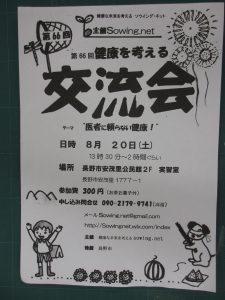 健康な未来を考える ソウイング・ネット
主催 Sowing.net
第66回
第66回 健康を考える
交流会
テーマ "医者に頼らない健康！"
日時 8月 20日(土)
13時30分~2時間ぐらい
場所 長野市安茂里公民館2F 実習室
長野市安茂里 1777-1
参加費 300円 (お茶お菓子付)
申し込み問合せ 090-2179-9741
メール Sowingnet@gmail.com
http://Sowingnet.wix.com/index
主催 健康な未来を考える sowing.net
後援 長野市